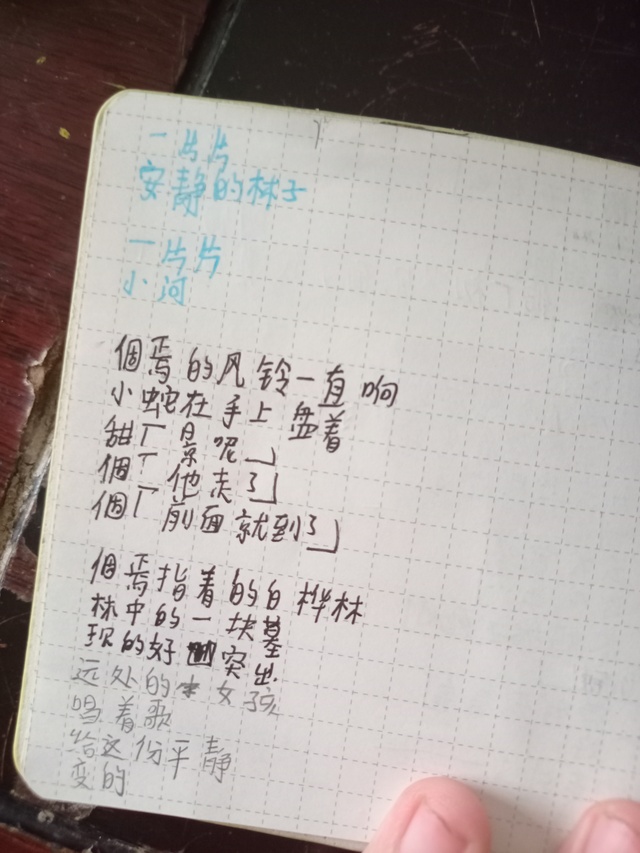 一片片
安静的林子
一片片
小河
個焉的风铃一直响
小蛇在手上盘着
甜「 景呢」
個「他走了」
個「前面就到了」
個焉指着的白桦林
林中的一块墓
现的好 突出
远处的 女孩
唱着歌
给这份平静
变的